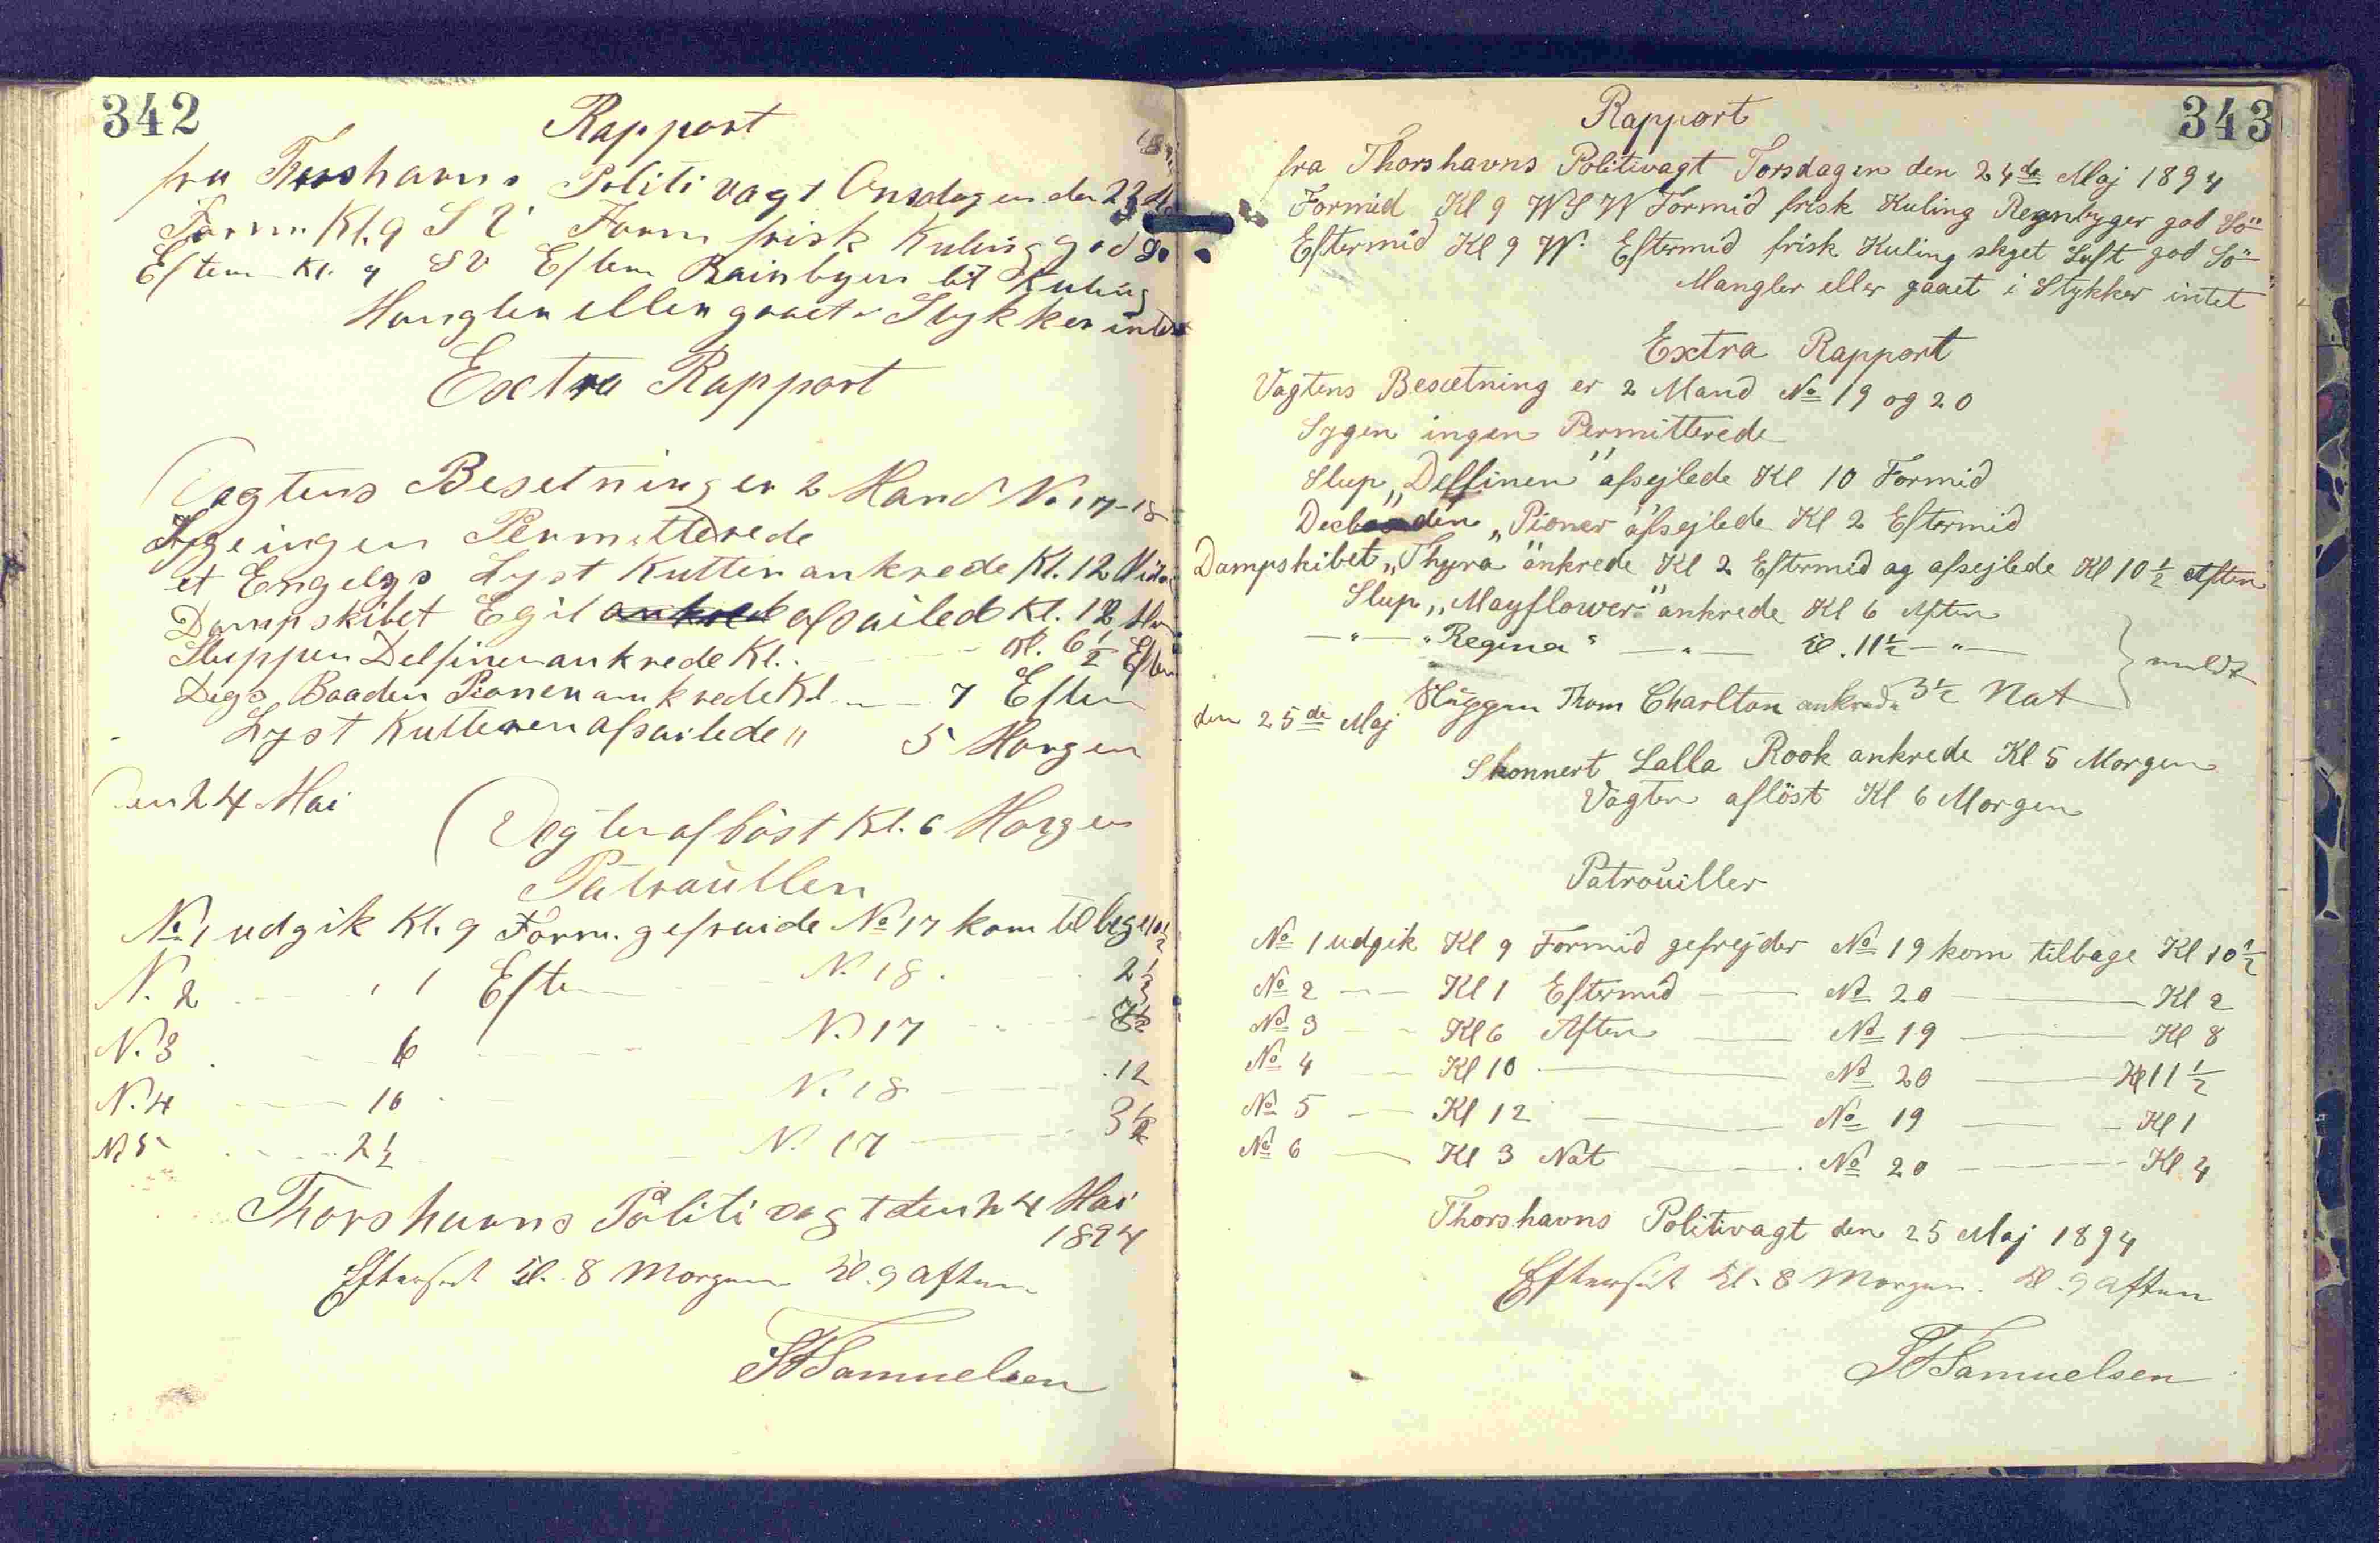 342
Rapport
fra Thorshavns Politi vagt Onsdagen den 23
Form. Kl. 9 S V Form frisk Kuling god
Eftem Kl. 9 SV Eftem Rainbyer lit Kuling
Mangler eller gaaet i Stykker intet
Extra Rapport
Vagtens Besetning er 2 Mand N. 17-18
Syge ingen Permitterede
et Engelgs Lyst Kutter ankrede Kl. 12
Dampskibet Egil afsailed Kl. 12
Sluppen Delfinen ankrede Kl. Kl. 6½ Eftm
Degs Baaden Pioner ankrede Kl 7 Eftm
Lyst Kutteren afsailede " 5 Morgen
Den 24 Mai
Vagten aflöst Kl. 6 Morgen
Patrouller
No 1 udgik Kl. 9 Form. gefraide No 17 kom tilbage 10½
N. 2 1 Eftm N. 18 2½
N. 3 6 N. 17
N. 4 10 N. 18 12
N 5 2½ N. 17 3½
Thorshavns Politi vagt den 24 Mai
1894
Efterset Kl. 8 Morgen Kl. 9 Aften
Samuelsen
343
Rapport
fra Thorshavns Politivagt Torsdagen den 24de Maj 1894
Formid Kl 9 WSW Formid frisk Kuling Regnbyger god Sö
Eftermid Kl 9 W. Eftermid frisk Kuling skyet Luft god Sö
Mangler eller gaaet i Stykker intet
Extra Rapport
Vagtens Besætning er 2 Mand No 19 og 20
Sygen ingen Permitterede
Slup „Delfinen" afsejlede Kl 10 Formid
„Pioner" afsejlede Kl 2 Eftermid
Dampskibet „Thyra" ankrede Kl 2 Eftermid og afsejlede Kl 10½ Aften
Slup „Mayflower" ankrede Kl 6 Aften
—"— "Regina" —"— Kl. 11½ —"—
den 25de Maj Sluppen Thom Charlton ankrede 3½ Nat
Skonnert Lalla Rook ankrede Kl 5 Morgen
Vagten aflöst Kl 6 Morgen
Patrouiller
No 1 udgik Kl 9 Formid gefrejder No 19 kom tilbage Kl 10½
No 2 — Kl 1 Eftermid — No 20 — Kl 2
No 3 — Kl 6 Aften — No 19 — Kl 8
No 4 — Kl 10 — No 20 — Kl 11½
No 5 — Kl 12 — No 19 — Kl 1
No 6 — Kl 3 Nat — No 20 — Kl 4
Thorshavns Politivagt den 25 Maj 1894
Efterset Kl. 8 Morgen. Kl. 9 Aften
Samuelsen